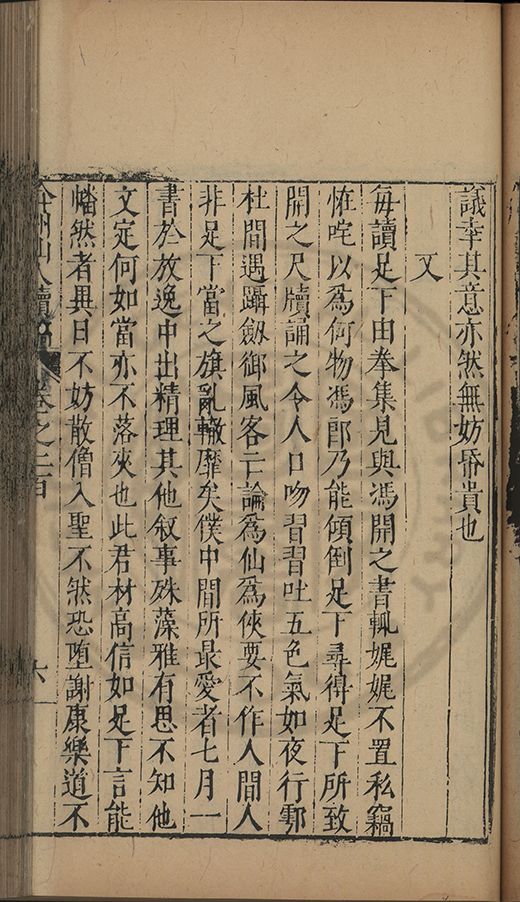 議幸其意亦然無妨昬貴也
又
每讀足下由拳集見與馮開之書輒娓娓不置私竊
恠咤以為何物馮郎乃能傾倒足下尋得足下所致
開之尺牘誦之令人口吻習習吐五色氣如夜行鄠
杜間遇躡劔御風客二論為仙為俠要不作人間人
非足下當之旗亂轍靡矣僕中間所最愛者七月一
書於放逸中出精理其他叙事殊藻雅有思不知他
文定何如當亦不落夾也此君材高信如足下言能
幡然者異日不妨散僧入聖不然恐堕謝康樂道不
弇州山人續稿卷之二百
六